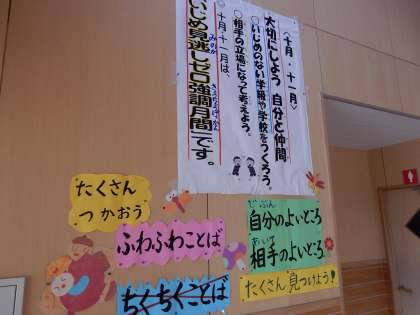 〈十月・十一月〉
大切にしよう 自分と仲間
○いじめのない学級や学校をつくろう。
○相手の立場になって考えよう。
○十月・十一月は、
いじめ見逃しゼロ強調月間です。
みのが
きょうちょうげっかん
たくさん
つかおう
ふわふわことば
ちくちくことば
じぶん
自分のよいところ
あいて
相手のよいところ
たくさん見つけよう！